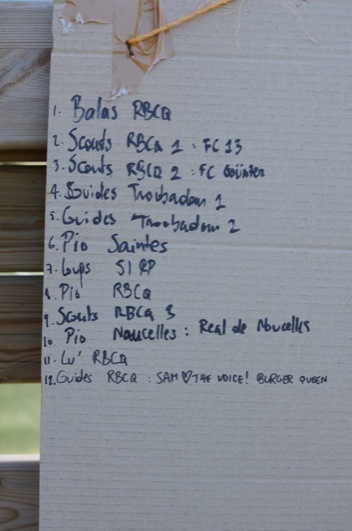 1. Balas RBCQ
2. Scouts RBCQ 1 : FC 13
3. Scouts RBCQ 2 : FC Goünter
4. Guides Troubadour 1
5. Guides Troubadour 2
6. Pio Saintes
7. Loups
8. Pio RBCQ
9. Scouts RBCQ 3
10. Pio Noucelles : Real de Noucelles
11. Lu' RBCQ
12. Guides RBCQ : SAM ♡ THE VOICE! BURGER QUEEN